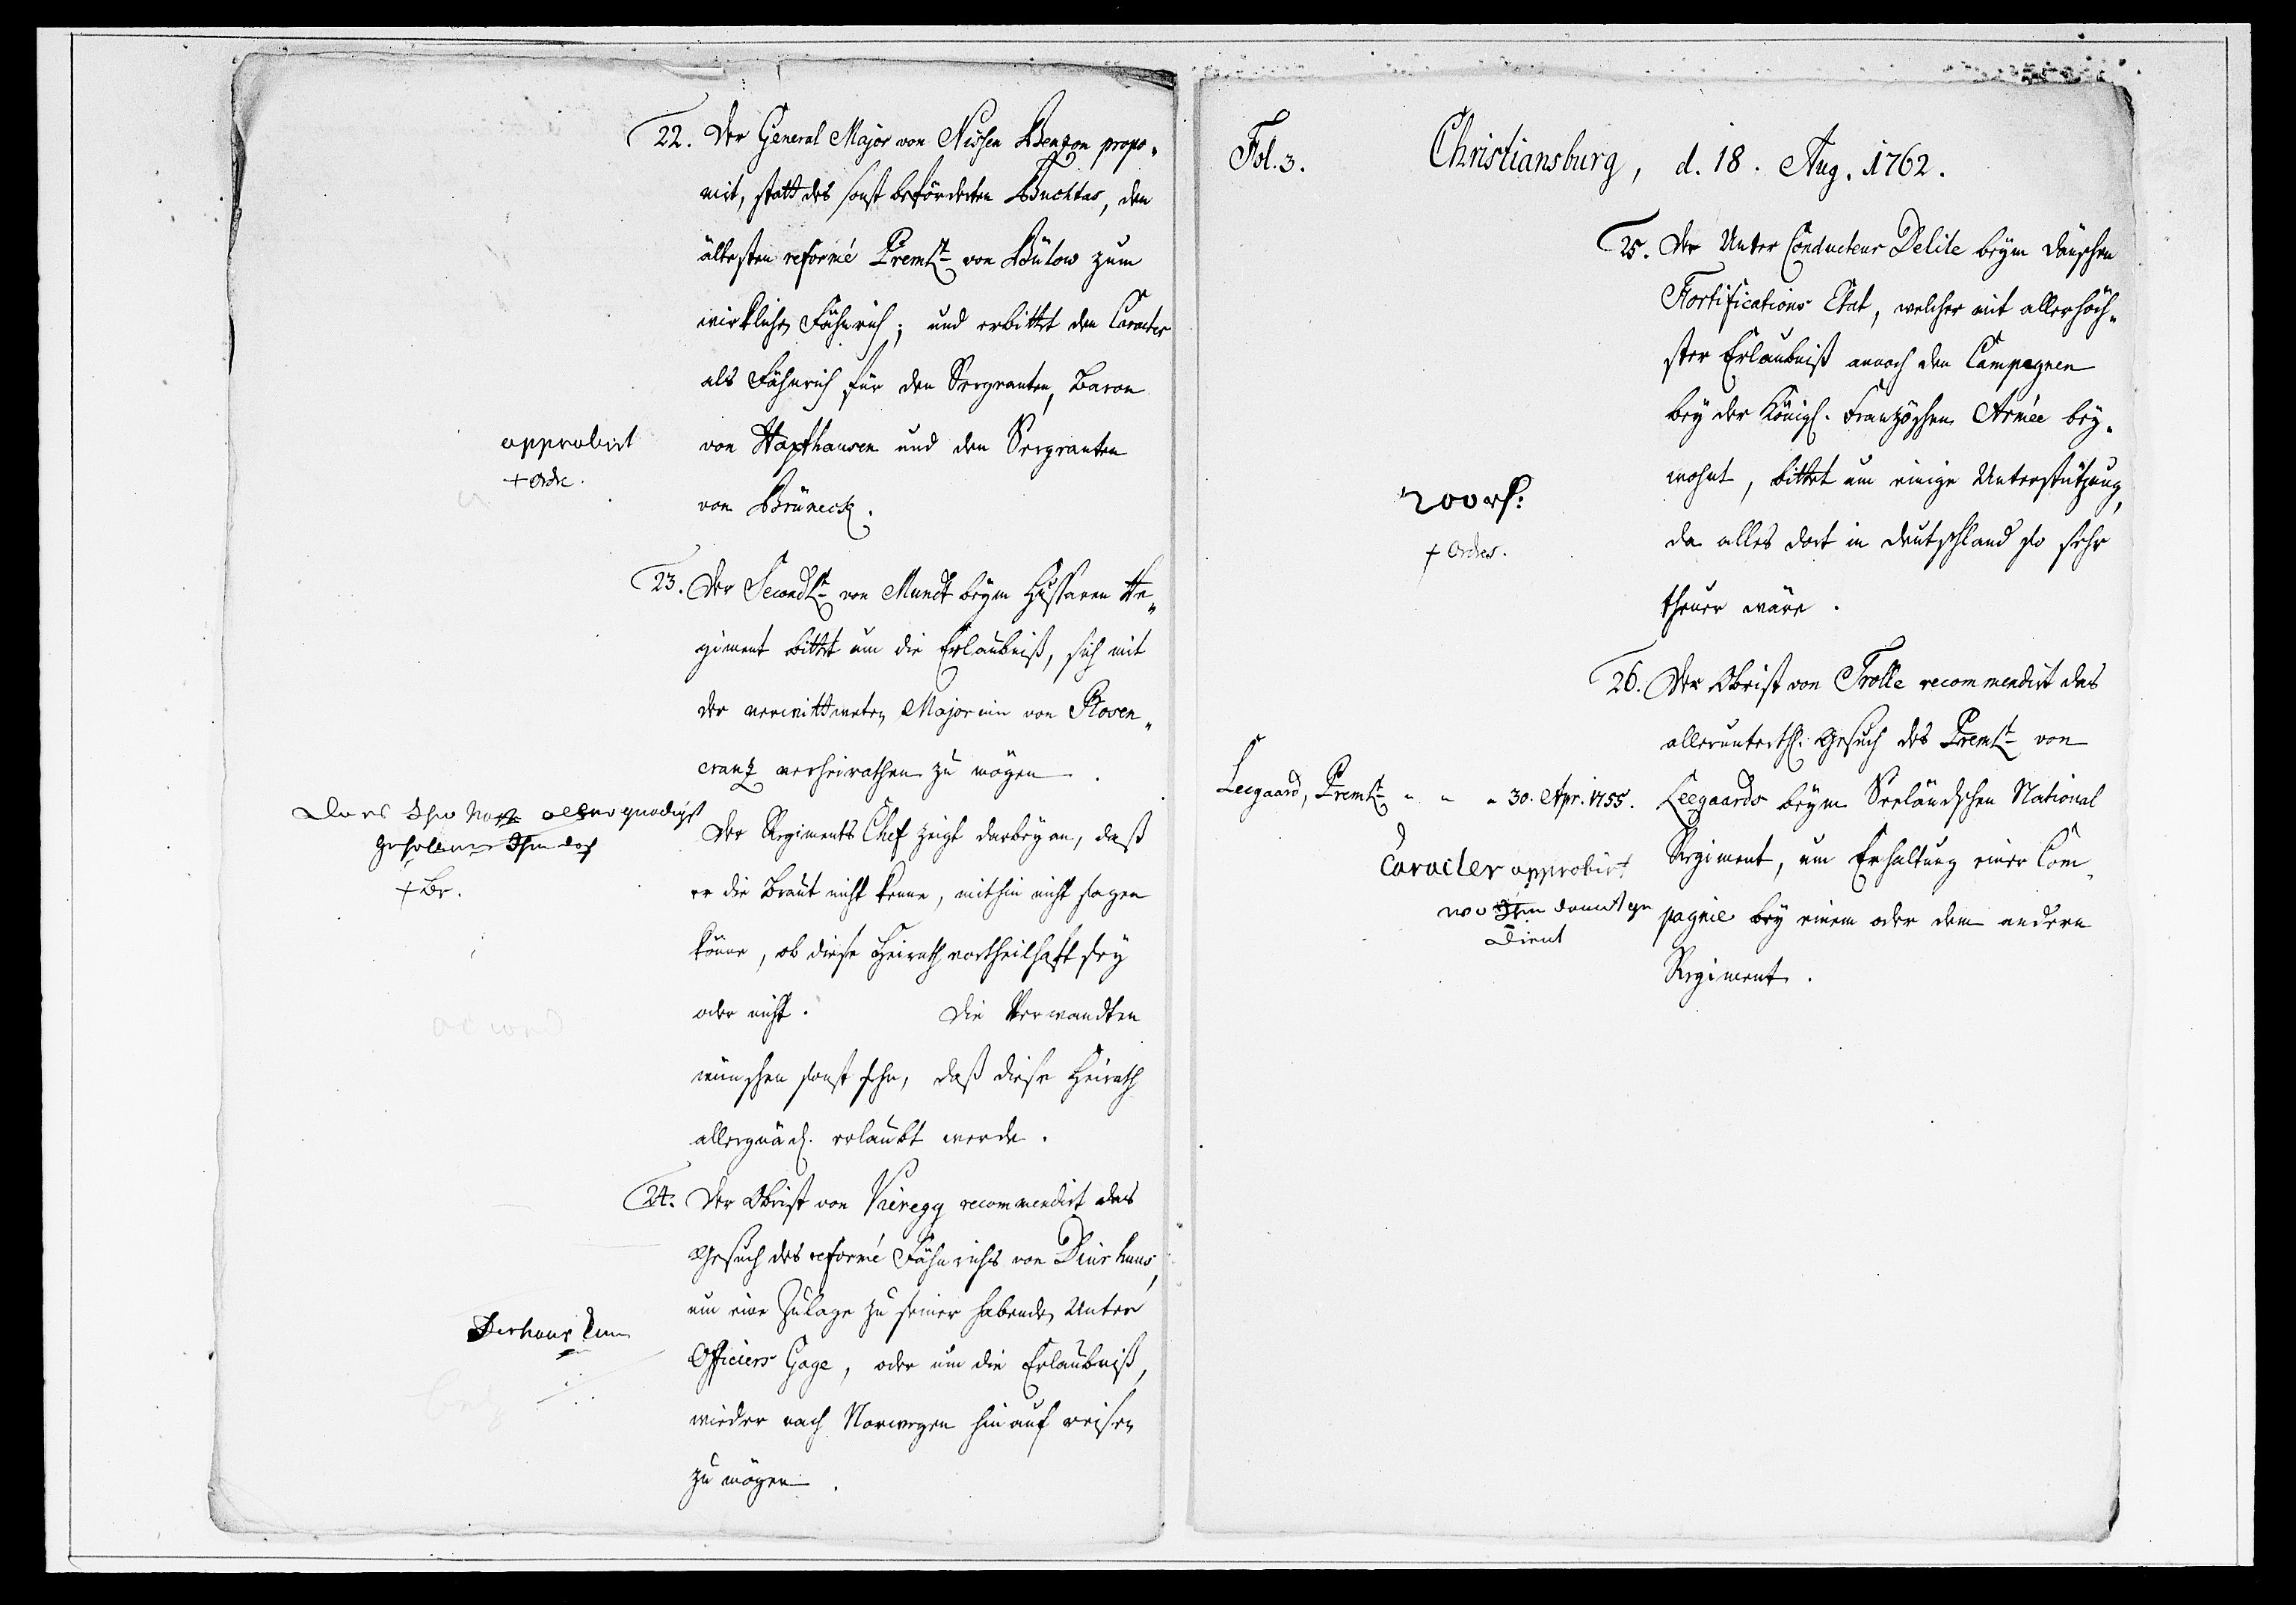 22. Der General Major von Nissen Benzon propo„
nirt, statt des sonst beförderten Buchtas, den
ältesten reformé PremLt von Bülow zum
wirklichen Fähnrich; und erbittet den Caracter
als Fähnrich für den Sergeanten, Baron
von Haxthausen und den Sergeanten
von Brüneck.
approbirt
+ ordre.
23. Der SecondLt von Mundt beym Hussaren Re„
giment bittet um die Erlaubniß, sich mit
der verwittweten Majorinn von Rosen„
crantz verheirathen zu mögen.
Der Regiments Chef zeigt darbey an, daß
er die Braut nicht kenne, mithin nicht sagen
könne, ob diese Heirath vortheilhaft sey
oder nicht. Die Verwandten
wünschen sonst sehr, daß diese Heirath
allergnäd. erlaubt werde.
allergnädigst
+ Br.
24. Der Obrist von Vieregg recommendirt das
Gesuch des reformé Fähnrichs von Diurhuus,
um eine Zulage zu seiner habenden Unter
Officiers Gage, oder um die Erlaubniß,
wieder nach Norwegen hinauf reisen
zu mögen.
Fol. 3. Christiansburg, d. 18. Aug. 1762.
25. Der Unter Conducteur Delile beym Dänschen
Fortifications Etat, welcher mit allerhöch„
ster Erlaubniß annoch den Campagnen
bey der Königl. Französchen Armée bey„
wohnt, bittet um einige Unterstützung,
da alles dort in Deutschland so sehr
theuer wäre.
200 rf:
+ Ordres.
26. Der Obrist von Trolle recommendirt das
allerunterth. Gesuch des PremLt von
Leegaards beym Seeländschen National
Regiment, um Erhaltung einer Com„
pagnie bey einem oder dem andern
Regiment.
Leegaard, PremLt „ „ „ 30. Apr. 1755.
Caracter approbirt
dient